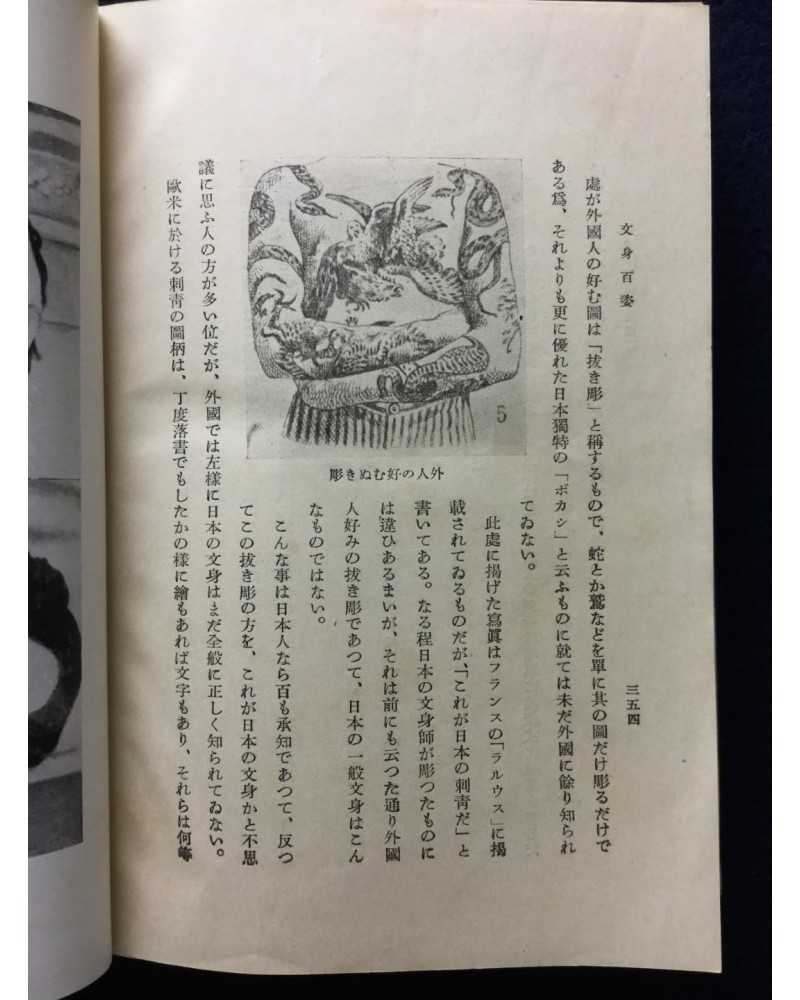 文身百姿
三五四
處が外國人の好む圖は「拔き彫」と稱するもので、蛇とか鷲などを單に其の圖だけ彫るだけで
ある爲、それよりも更に優れた日本獨特の「ボカシ」と云ふものに就ては未だ外國に餘り知られ
てゐない。
此處に揭げた寫眞はフランスの「ラルウス」に揭
載されてゐるものだが、「これが日本の刺靑だ」と
書いてある。なる程日本の文身師が彫つたものに
は違ひあるまいが、それは前にも云つた通り外國
人好みの拔き彫であつて、日本の一般文身はこん
なものではない。
こんな事は日本人なら百も承知であつて、反つ
てこの拔き彫の方を、これが日本の文身かと不思
議に思ふ人の方が多い位だが、外國では左樣に日本の文身はまだ全般に正しく知られてゐない。
歐米に於ける刺靑の圖柄は、丁度落書でもしたかの樣に繪もあれば文字もあり、それらは何等
5
外人の好むぬき彫